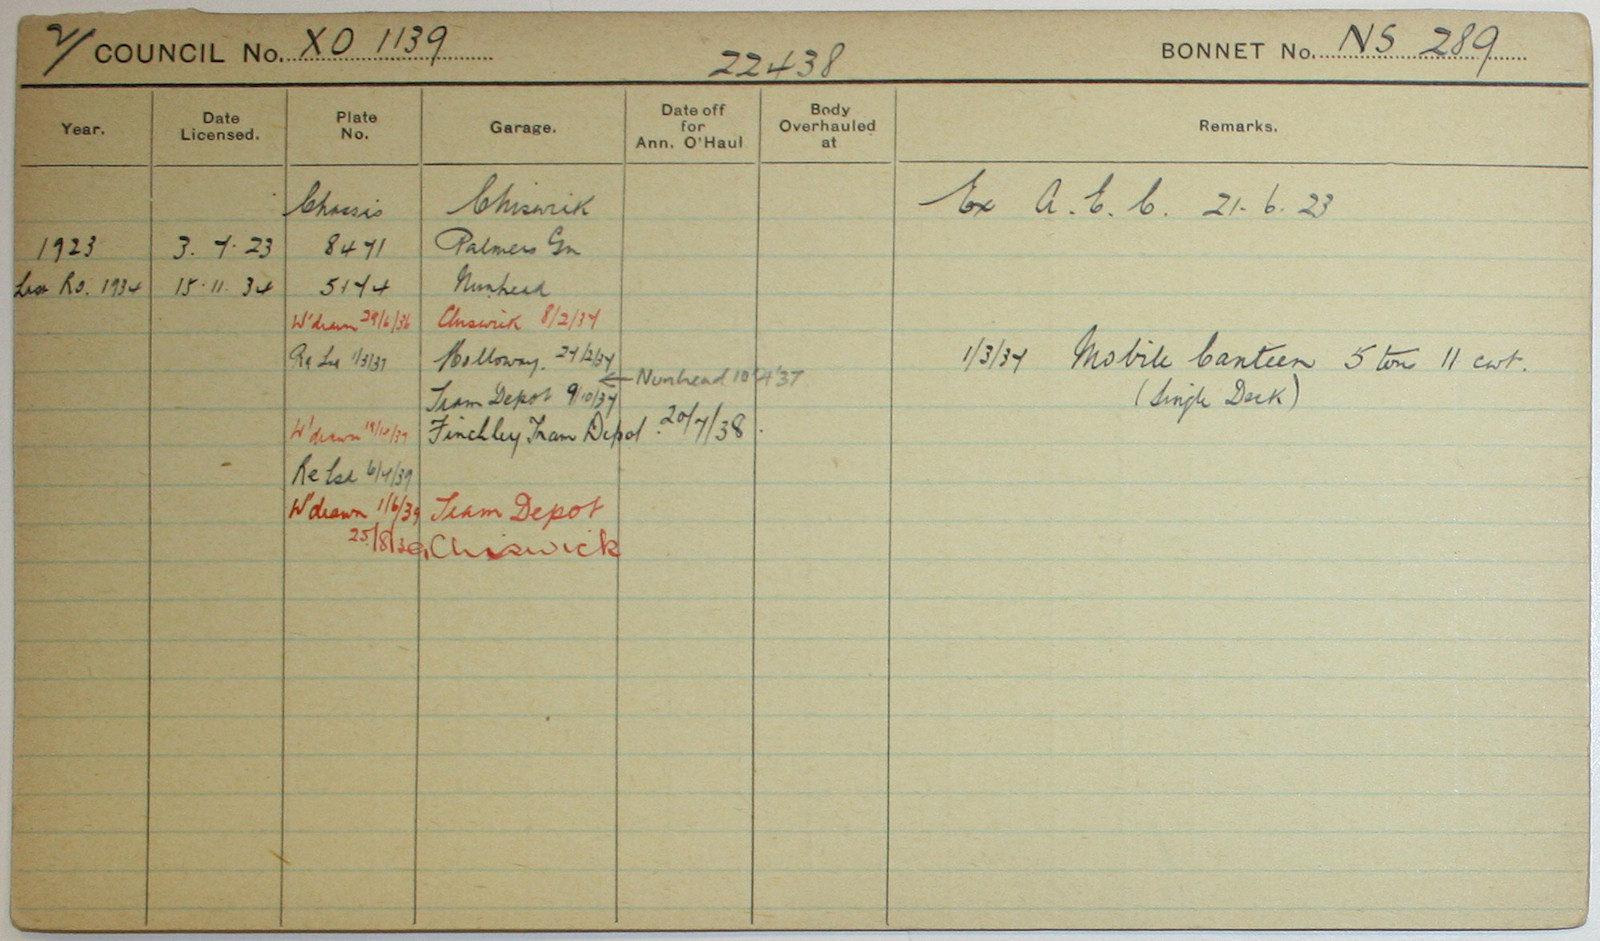 2/ COUNCIL No. XO 1139 22438 BONNET No. NS 289
Year. Date Licensed. Plate No. Garage. Date off for Ann. O'Haul Body Overhauled at Remarks.
Chassis Chiswick Ex A.E.C. 21.6.23
1923 3.7.23 8471 Palmers Gn
Last Rd. 1934 15.11.34 5174 Nunhead
W'drawn 29/6/36 Chiswick 8/2/37
Re Lsd 1/3/37 Holloway. 27/2/37 1/3/37 Mobile Canteen 5 tons 11 cwt.
← Nunhead 10'4'37
Tram Depot 9/10/37 (Single Deck)
W'drawn Finchley Tram Depot 20/7/38.
Re Lsd 6/4/39
W'drawn 1/6/39 Tram Depot
25/8/39 Chiswick